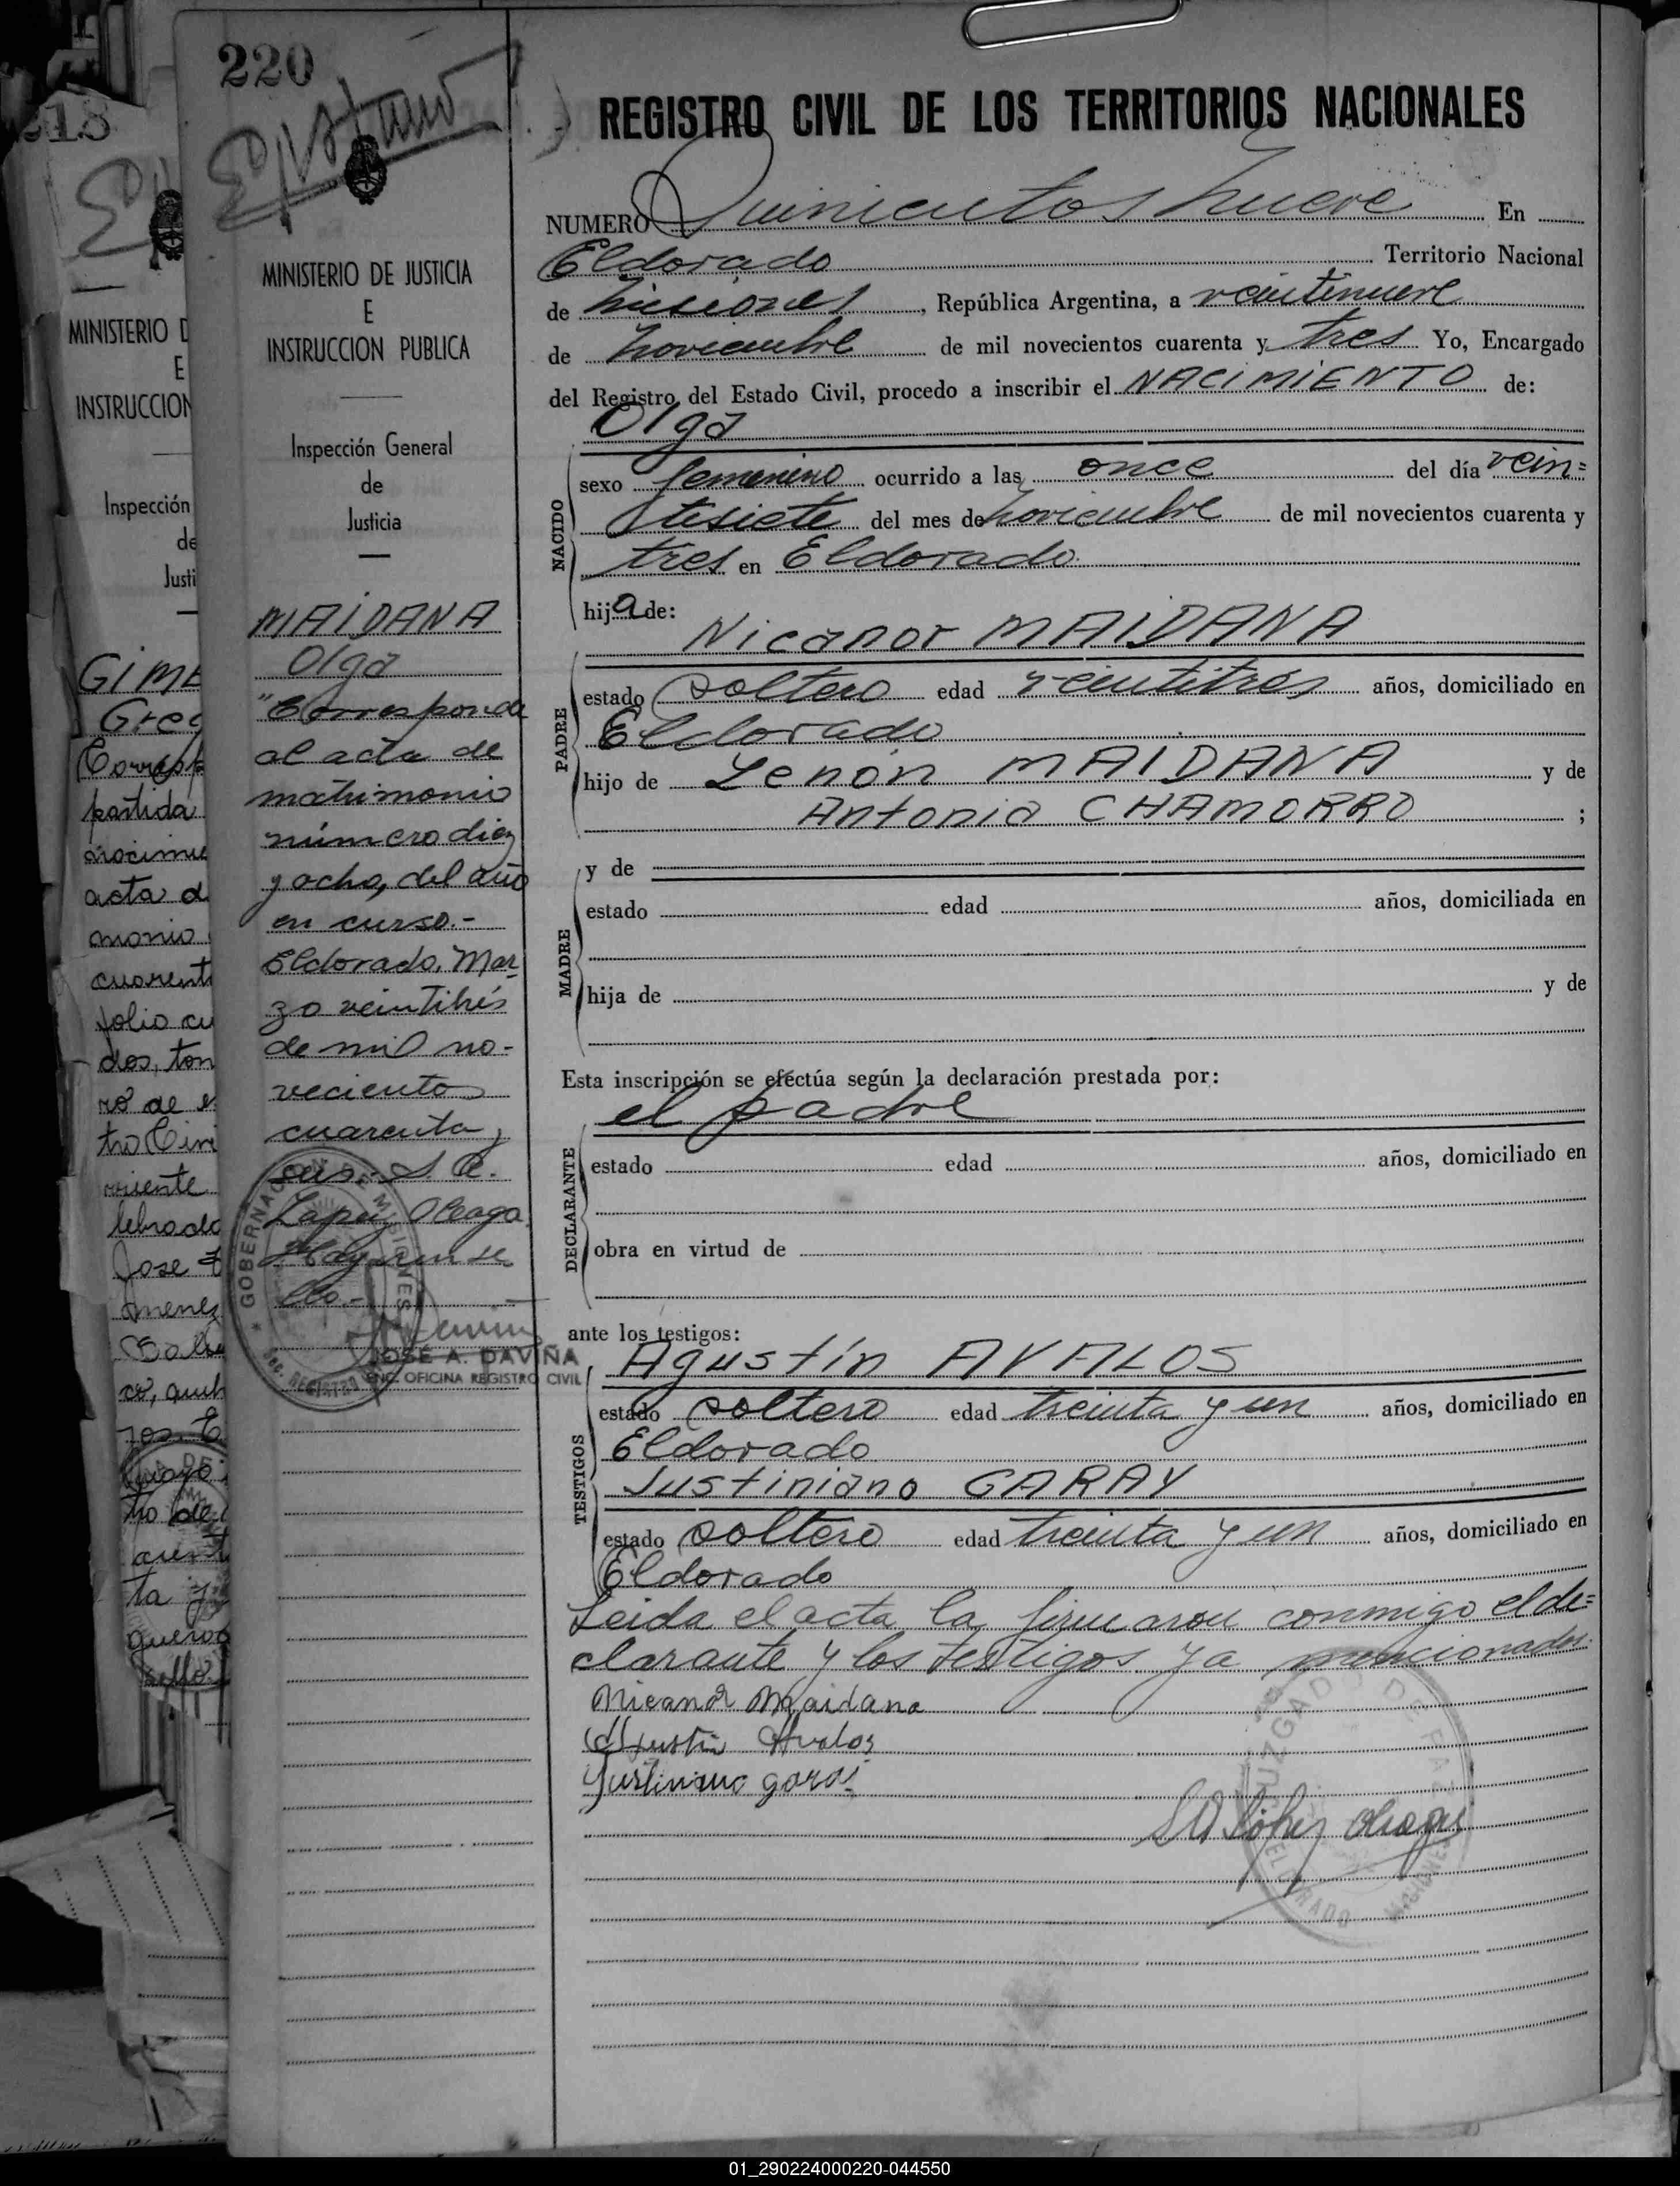 220
REGISTRO CIVIL DE LOS TERRITORIOS NACIONALES
NUMERO Quinientos nueve En
Eldorado Territorio Nacional
de Misiones, República Argentina, a veintinueve
de noviembre de mil novecientos cuarenta y tres Yo, Encargado
del Registro del Estado Civil, procedo a inscribir el NACIMIENTO de:
Olga
NACIDO
sexo femenino ocurrido a las once del día vein=
tisiete del mes de noviembre de mil novecientos cuarenta y
tres en Eldorado
hija de:
Nicanor MAIDANA
PADRE
estado soltero edad veintitrés años, domiciliado en
Eldorado
hijo de Zenón MAIDANA y de
Antonia CHAMORRO ;
MADRE
y de
estado edad años, domiciliada en
hija de y de
Esta inscripción se efectúa según la declaración prestada por:
el padre
DECLARANTE
estado edad años, domiciliado en
obra en virtud de
ante los testigos:
TESTIGOS
Agustín AVALOS
estado soltero edad treinta y un años, domiciliado en
Eldorado
Justiniano GARAY
estado soltero edad treinta y un años, domiciliado en
Eldorado
Leida el acta la firmaron conmigo el de=
clarante y los testigos ya mencionados.
Nicanor Maidana
Agustin Avalos
Justiniano garai
S A López Oleaga
JUZGADO DE PAZ
ELDORADO MISIONES
MINISTERIO DE JUSTICIA
E
INSTRUCCION PUBLICA
Inspección General
de
Justicia
MAIDANA
Olga
"Corresponde
al acta de
matrimonio
número diez
y ocho, del año
en curso.-
Eldorado, Mar-
zo veintitrés
de mil no-
vecientos
cuarenta y
seis: S. A.
López Oleaga.
Hay un se-
llo.-
GOBERNACION DE MISIONES
JOSÉ A. DAVIÑA
ENC. OFICINA REGISTRO CIVIL
218
MINISTERIO D
E
INSTRUCCION
Inspección
de
Justi
GIME
Greg
Corresp
partida
nacimie
acta d
monio
cuarent
folio cu
dos, tom
ro de
tro Civi
rriente
lebrado
Jose
menez
01_290224000220-044550